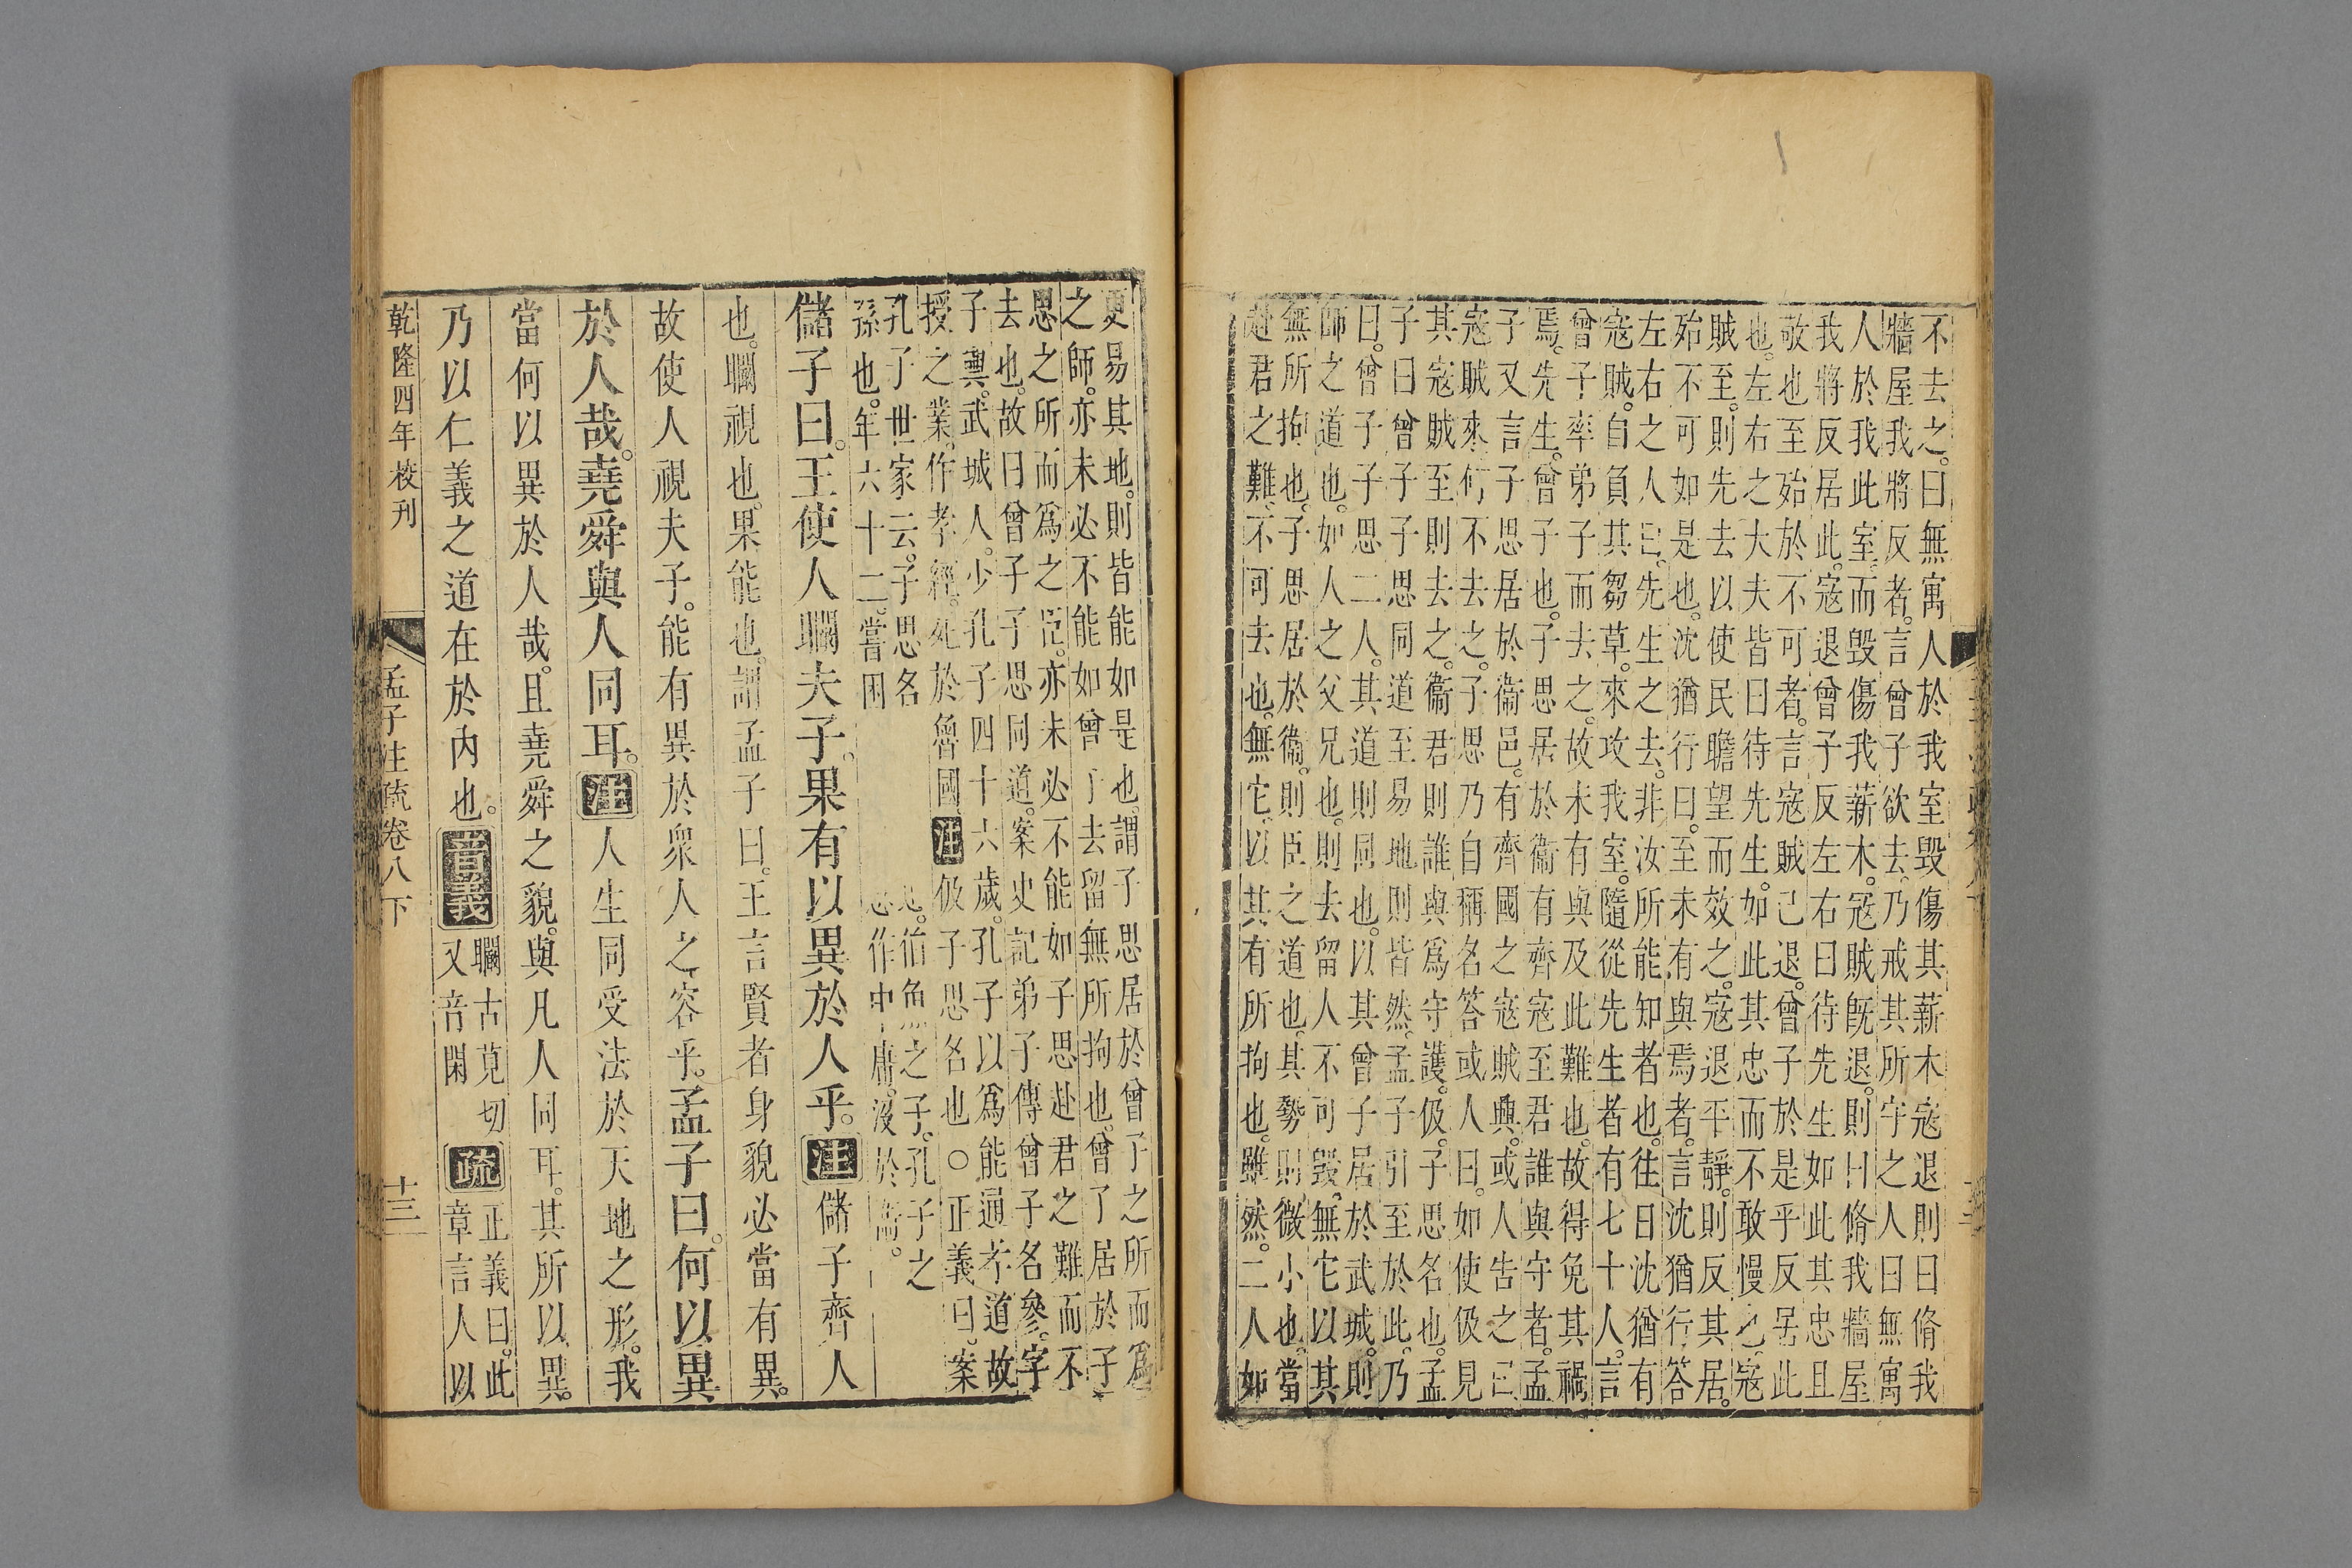 不去之。曰無寓人於我室毀傷其薪木寇退則曰脩我
牆屋我將反者。言曾子欲去乃戒其所守之人曰無寓
人於我此室而毀傷我薪木。寇賊既退。則曰脩我牆屋
我將反居此。寇退曾子反左右曰待先生如此其忠且
敬也至殆於不可者。言寇賊已退。曾子於是乎反居此
也。左右之大夫皆曰待先生如此其忠而不敢慢之寇
賊至。則先去以使民瞻望而效之。寇退平靜。則反其居。
殆不可如是也。沈猶行曰。至未有與焉者。言沈猶行答
左右之人曰。先生之去。非汝所能知者也。往日沈猶有
寇賊。自負其芻草。來攻我室。隨從先生者有七十人。言
曾子率弟子而去之。故未有與及此難也。故得免其禍
焉。先生。曾子也。子思居於衞有齊寇至君誰與守者。孟
子又言子思居於衞邑。有齊國之寇賊興。或人告之曰
寇賊來何不去之。子思乃自稱名答或人曰。如使伋見
其寇賊至則去之。衞君則誰與爲守護。伋。子思名也。孟
子曰曾子子思同道至易地則皆然。孟子引至於此。乃
曰。曾子子思二人。其道則同也。以其曾子居於武城。則
師之道也。如人之父兄也。則去留人不可毀。無它以其
無所拘也。子思居於衞。則臣之道也。其勢則微小也。當
赴君之難。不可去也。無它。以其有所拘也。雖然。二人如
更易其地。則皆能如是也。謂子思居於曾子之所而爲
之師。亦未必不能如曾子去留無所拘也。曾子居於子
思之所而爲之臣。亦未必不能如子思赴君之難而不
去也。故曰曾子子思同道。案史記弟子傳曾子名參。字
子輿。武城人。少孔子四十六歲。孔子以爲能通孝道故
授之業。作孝經。死於魯國注伋子思名也○正義曰。案
孔子世家云。子思名
孫也。年六十二。嘗困
伯魚之子。孔子之
思作中庸。沒於衞。
儲子曰。王使人瞷夫子。果有以異於人乎。注儲子齊人
也。瞷視也。果能也。謂孟子曰。王言賢者身貌必當有異。
故使人視夫子。能有異於衆人之容乎。孟子曰。何以異
於人哉。堯舜與人同耳。注人生同受法於天地之形。我
當何以異於人哉。且堯舜之貌。與凡人同耳。其所以異。
乃以仁義之道在於內也。音義瞷古莧切
又音閑
疏正義曰。此
章言人以
乾隆四年校刊
孟子注疏卷八下
十三